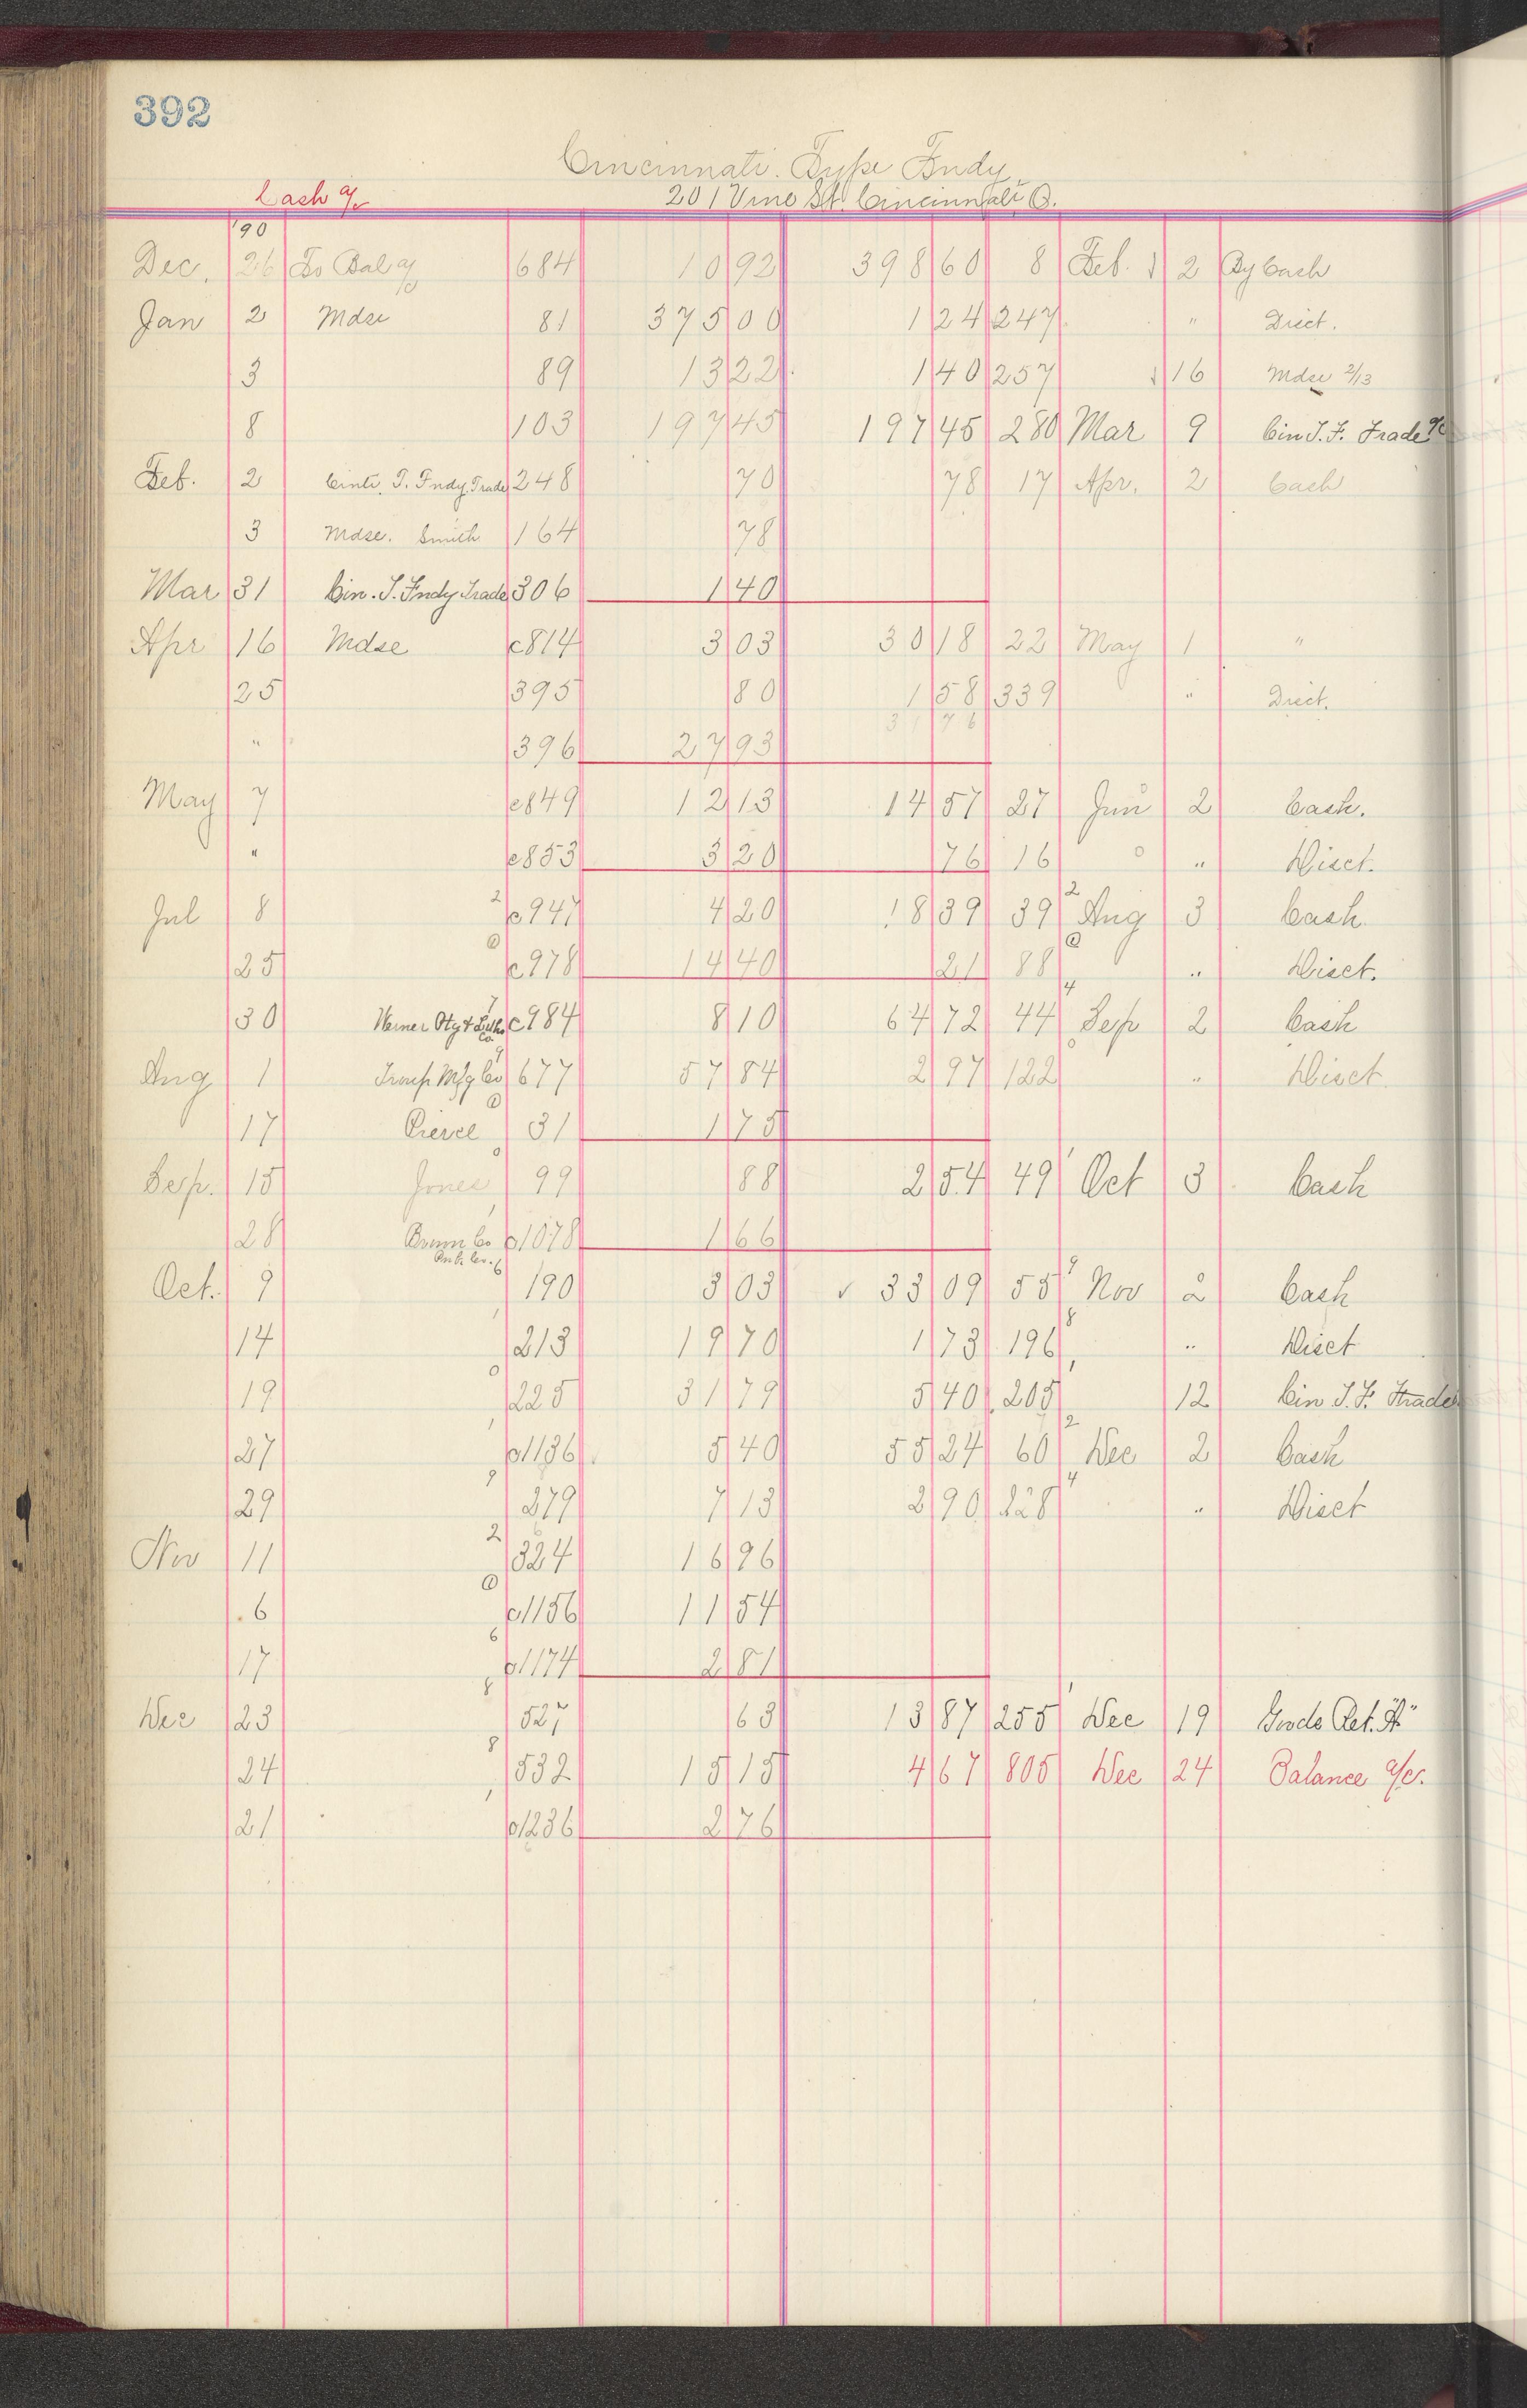 392
Cincinnati. Type Fndy.
Cash a/c 201 Vine St. Cincinnati O.
'90
Dec. 26 To Bal a/c 684 10 92 398 60 8 Feb. 2 By Cash
Jan 2 Mdse 81 375 00 1 24 247 " Disct.
3 89 13 22 1 40 257 16 Mdse 2/13
8 103 197 45 197 45 280 Mar 9 Cin T. F. Trade a/c
Feb. 2 Cinti. T. Fndy. Trade 248 70 78 17 Apr. 2 Cash
3 Mdse. Smith 164 78
Mar 31 Cin. T. Fndy Trade 306 1 40
Apr 16 Mdse c814 3 03 30 18 22 May 1 "
25 395 80 1 58 339 " Disct.
31 76
" 396 27 93
May 7 c849 12 13 14 57 27 Jun 2 Cash.
" c853 3 20 76 16 " Disct.
Jul 8 2 c947 4 20 18 39 39 2 Aug 3 Cash
25 c978 14 40 21 88 " Disct.
30 Werner Ptg & Litho Co c984 8 10 64 72 44 4 Sep 2 Cash
Aug 1 Mfg Co 677 57 84 2 97 122 " Disct
17 Pierce 31 1 75
Sep. 15 Jones 99 88 2 54 49 Oct 3 Cash
28 c1078 1 66
Oct. 9 190 3 03 ✓ 33 09 55 Nov 2 Cash
14 213 19 70 1 73 196 " Disct
19 225 31 79 5 40 205 12 Cin T. F. Trade
27 c1136 5 40 55 24 60 2 Dec 2 Cash
29 279 7 13 2 90 228 4 " Disct
Nov 11 2 324 16 96
6 c1156 11 54
17 6 c1174 2 81
Dec 23 8 527 63 13 87 255 Dec 19 Goods Ret. "A"
24 8 532 15 15 4 67 805 Dec 24 Balance a/c.
21 c1236 2 76